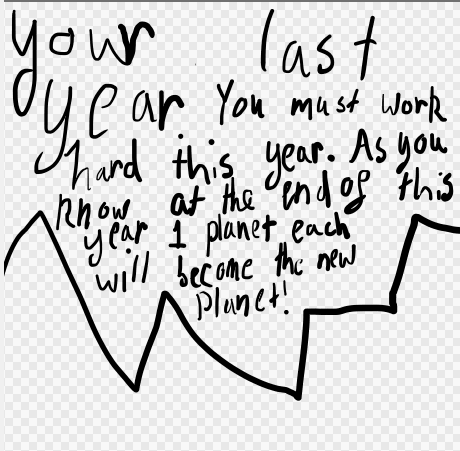 your last
year You must work
hard this year. As you
know at the end of this
year 1 planet each
will become the new
planet!